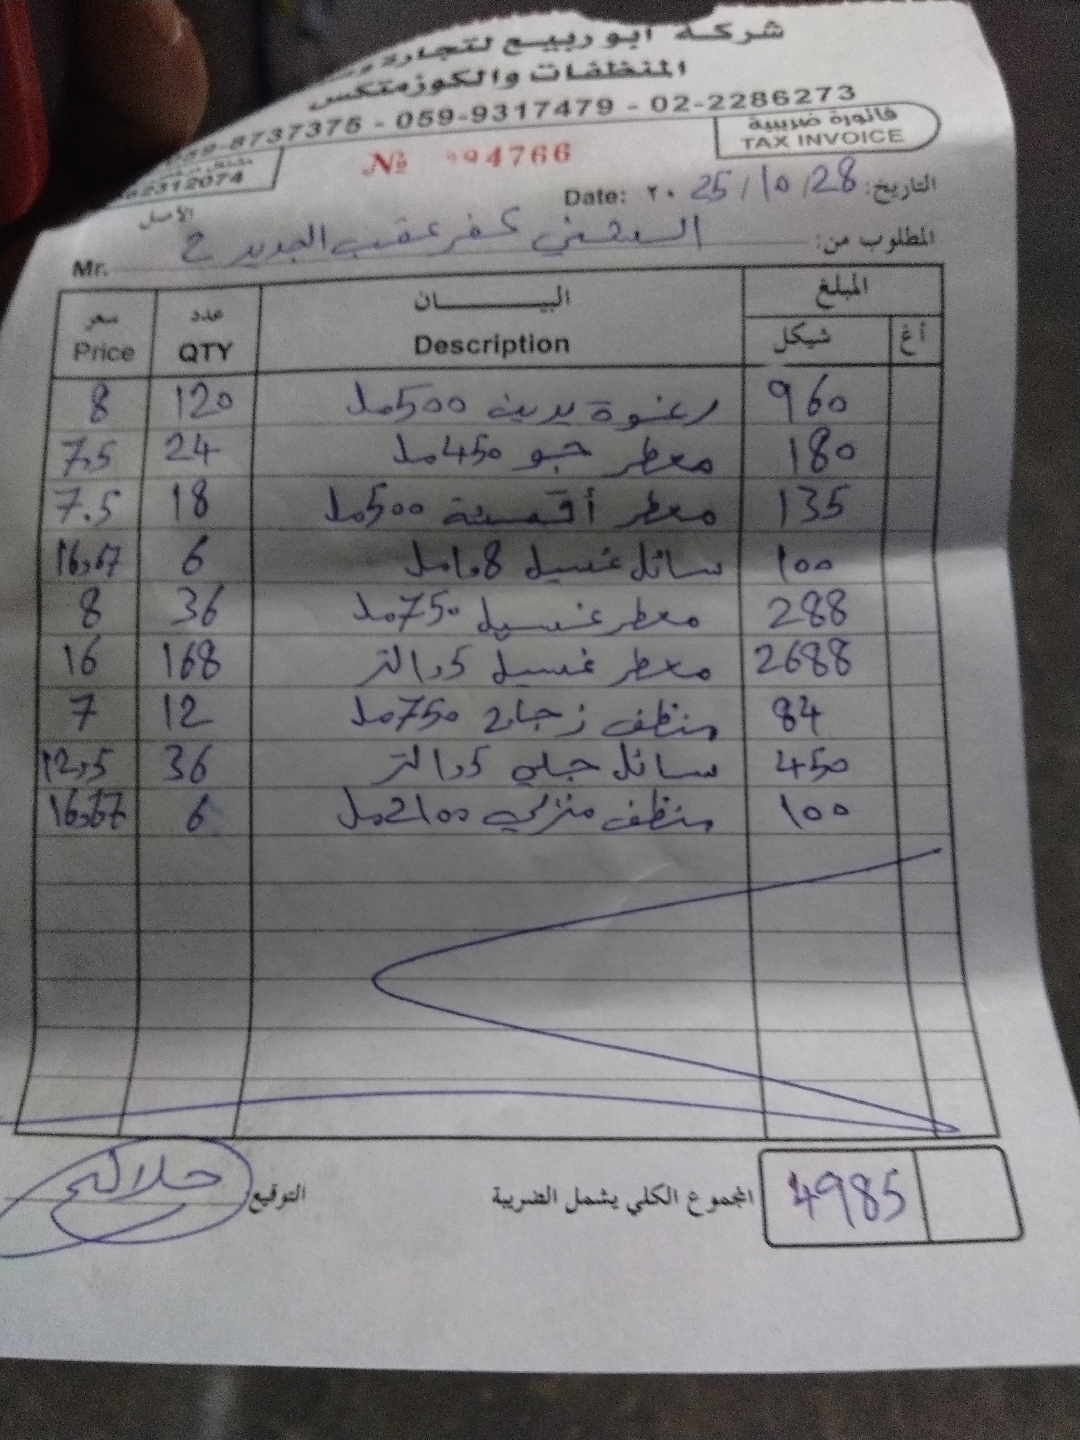 شركة ابو ربيع لتجارة
المنظفات والكوزمتكس
02-2286273 - 059-9317479 - 059-8737375
فاتورة ضريبية
TAX INVOICE
№ 94766
562312074
الأصل
التاريخ: 28 / 10 / 25 ٢٠ Date:
المطلوب من: كفر عقب الجديد 2 Mr.
المبلغ البيـــــــان عدد سعر
أغ شيكل Description QTY Price
960 رغوة يدين 500 مل 120 8
180 معطر جو 450 مل 24 7.5
135 معطر أقمشة 500 مل 18 7.5
100 سائل غسيل 6 16.67
288 معطر غسيل 750 مل 36 8
2688 معطر غسيل 1.5 لتر 168 16
84 منظف زجاج 750 مل 12 7
450 سائل جلي 1.5 لتر 36 12.5
100 منظف منزلي 2100 مل 6 16.67
4985 المجموع الكلي يشمل الضريبة التوقيع